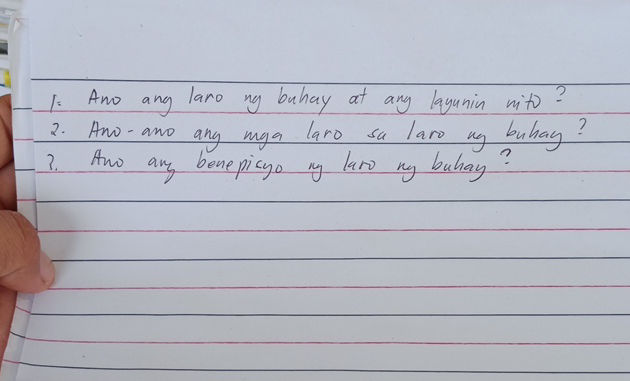 1. Ano ang laro ng buhay at ang layunin nito?
2. Ano-ano ang mga laro sa laro ng buhay?
3. Ano ang benepisyo ng laro ng buhay?